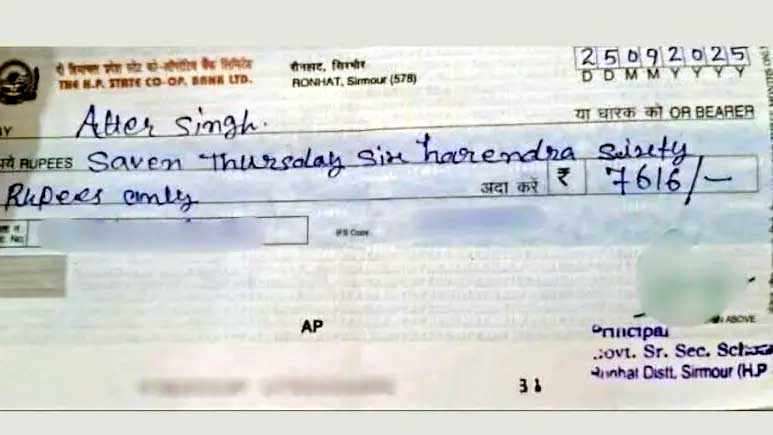 दी हिमाचल प्रदेश स्टेट को-ऑपरेटिव बैंक लिमिटेड
THE H.P. STATE CO-OP. BANK LTD.
रोनहाट, सिरमौर
RONHAT, Sirmour (578)
25092025
D D M M Y Y Y Y
Atter Singh.
या धारक को OR BEARER
RUPEES Saven Thursday Six harendra
Rupees only
अदा करें ₹ 7616/-
IFS Code
AP
ABOVE
Principal
Govt. Sr. Sec.
Ronhat Distt. Sirmour (H.P
31